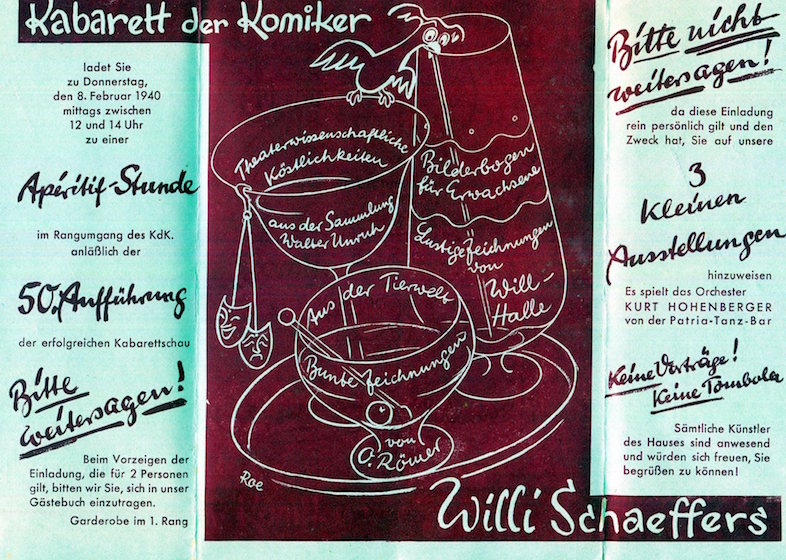 Kabarett der Komiker
ladet Sie
zu Donnerstag,
den 8. Februar 1940
mittags zwischen
12 und 14 Uhr
zu einer
Apéritif-Stunde
im Rangumgang des KdK.
anläßlich der
50. Aufführung
der erfolgreichen Kabarettschau
Bitte
weitersagen!
Beim Vorzeigen der
Einladung, die für 2 Personen
gilt, bitten wir Sie, sich in unser
Gästebuch einzutragen.
Garderobe im 1. Rang
Theaterwissenschaftliche
Köstlichkeiten
aus der Sammlung
Walter Unruh
Bilderbogen
für Erwachsene
Lustige Zeichnungen
von
Will-
Halle
Aus der Tierwelt
Bunte Zeichnungen
von
O. Römer
Roe
Bitte nicht
weitersagen!
da diese Einladung
rein persönlich gilt und den
Zweck hat, Sie auf unsere
3
Kleinen
Ausstellungen
hinzuweisen
Es spielt das Orchester
KURT HOHENBERGER
von der Patria-Tanz-Bar
Keine Vorträge!
Keine Tombola
Sämtliche Künstler
des Hauses sind anwesend
und würden sich freuen, Sie
begrüßen zu können!
Willi Schaeffers